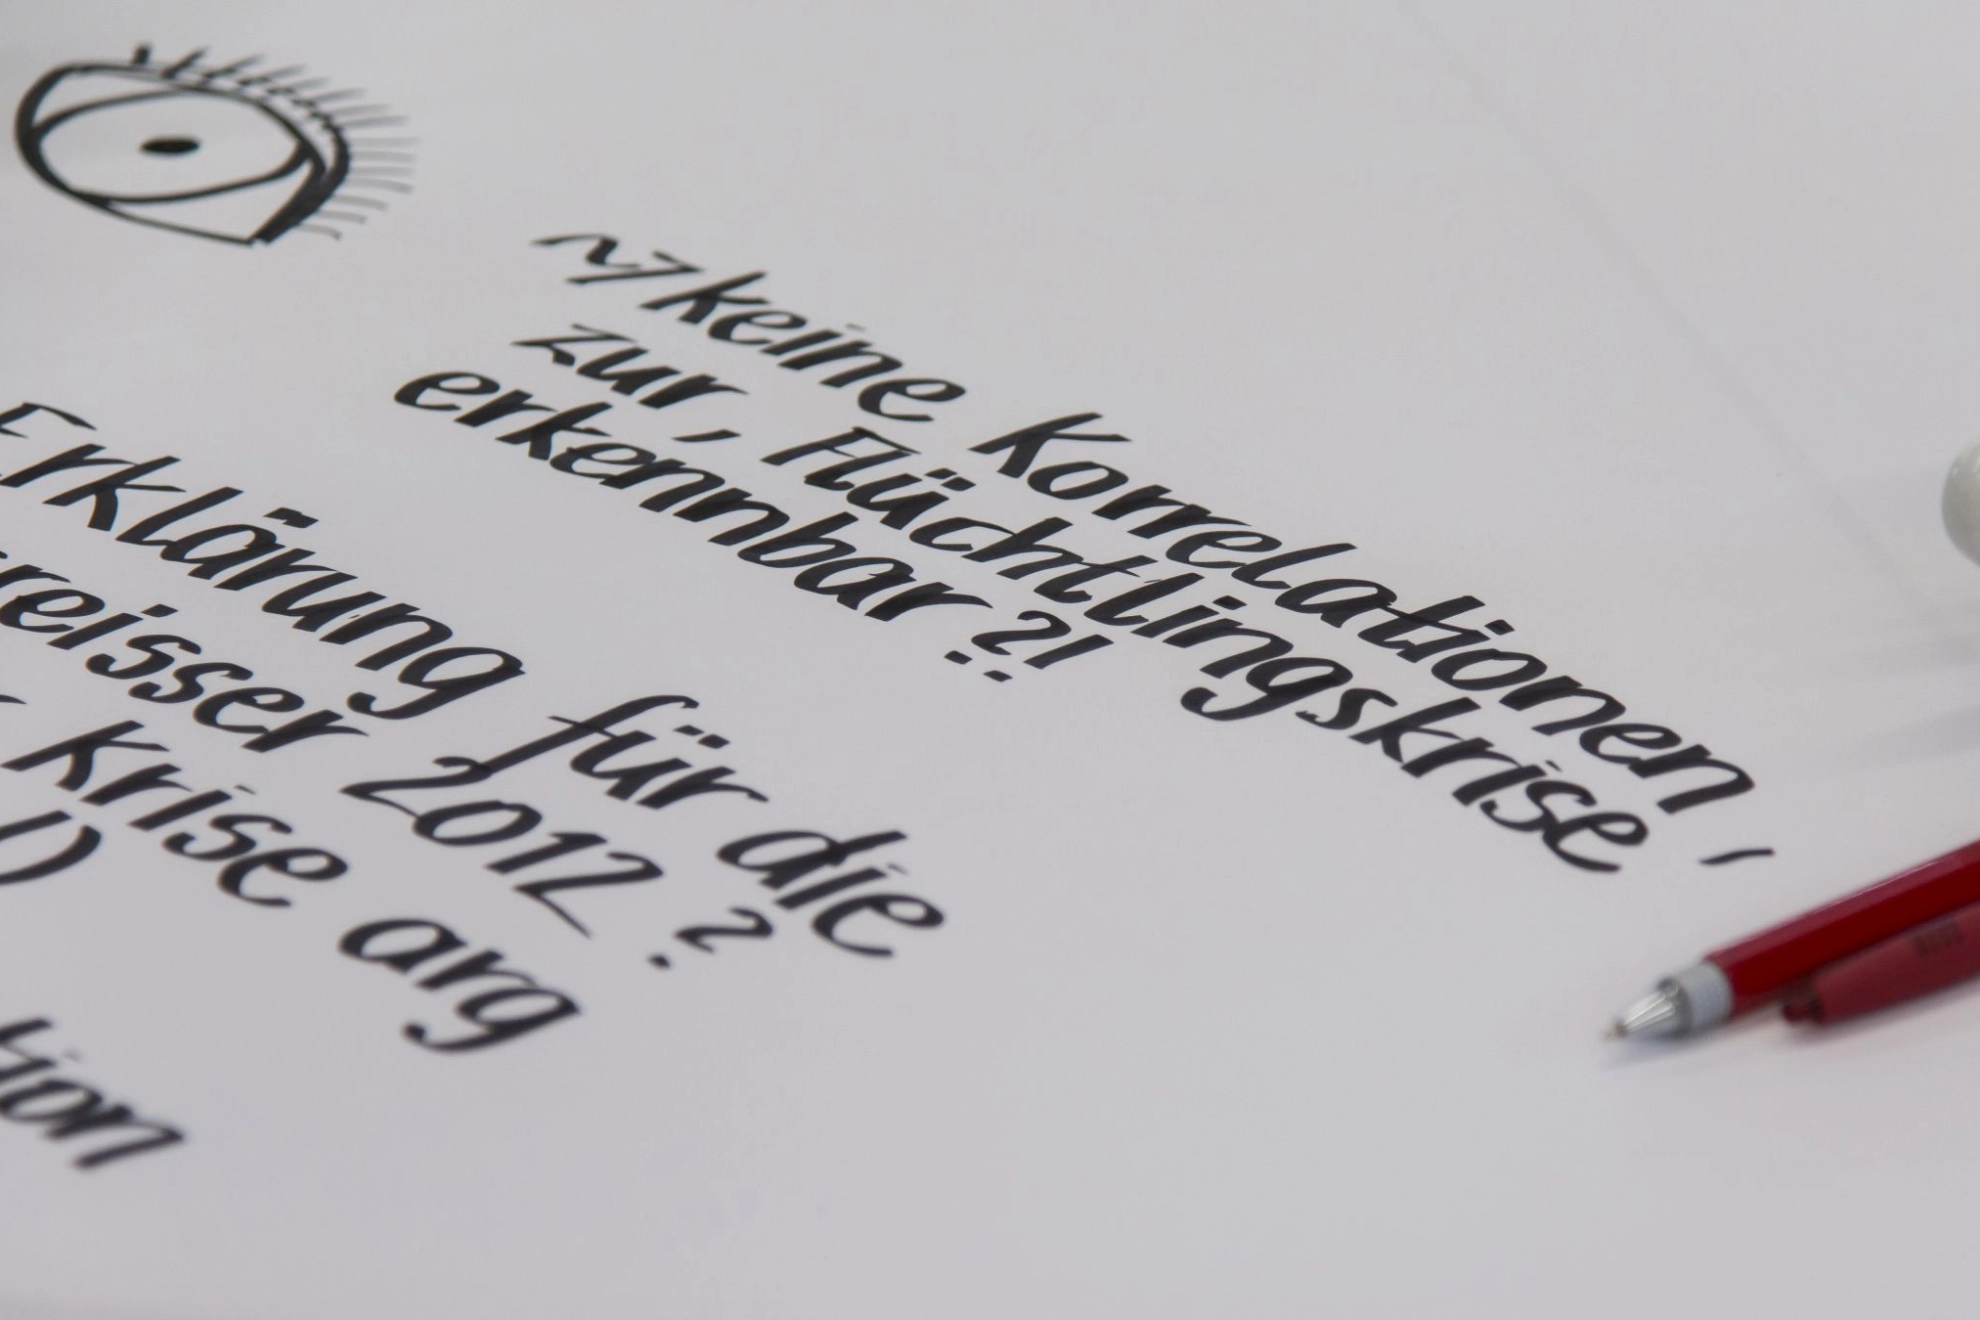 ~> keine Korrelationen
zur ‚Flüchtlingskrise'
erkennbar ?!
Erklärung für die
reisser 2012 ?
Krise arg
)
tion